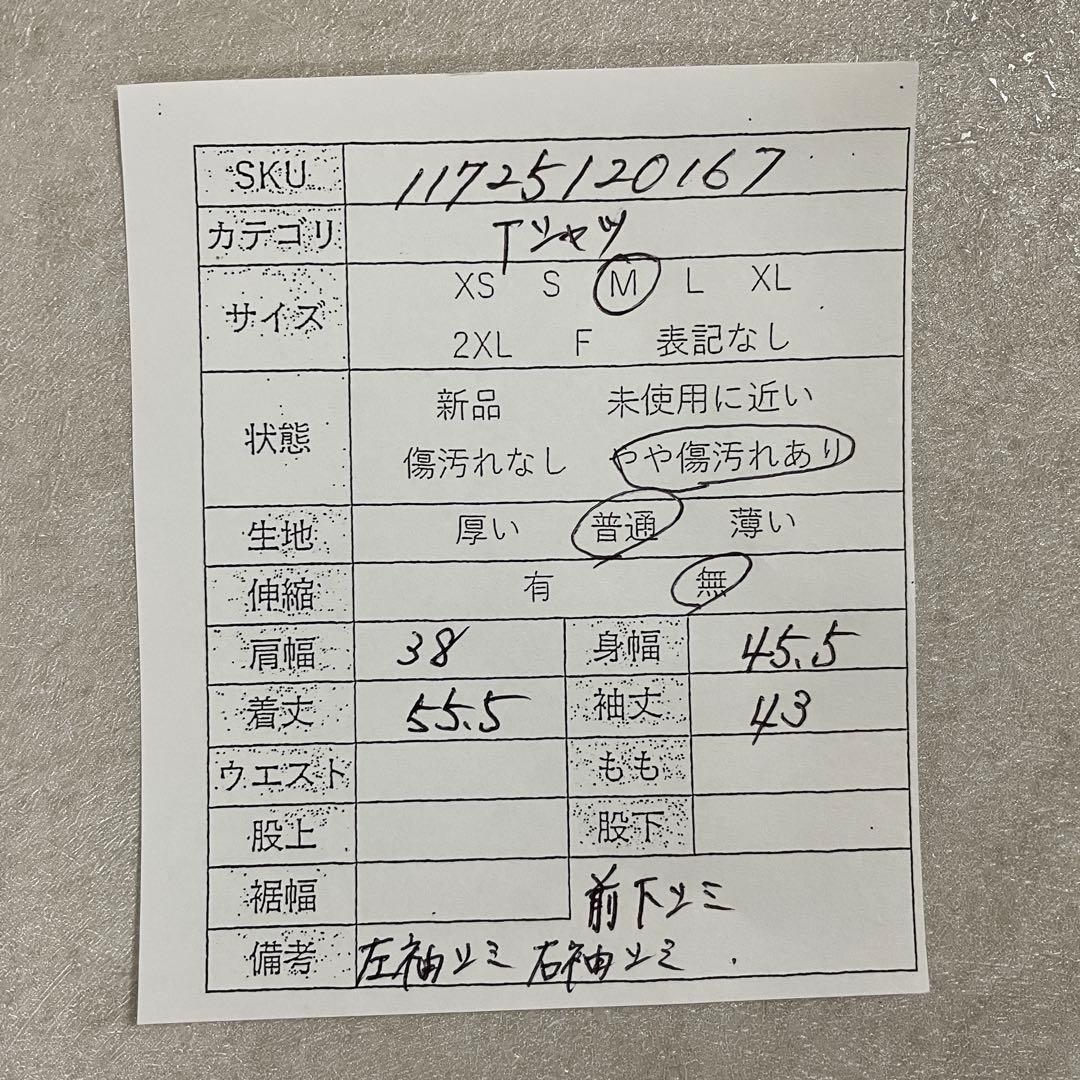 SKU 11725120167
カテゴリ Tシャツ
サイズ XS S M L XL
2XL F 表記なし
状態 新品 未使用に近い
傷汚れなし やや傷汚れあり
生地 厚い 普通 薄い
伸縮 有 無
肩幅 38 身幅 45.5
着丈 55.5 袖丈 43
ウエスト もも
股上 股下
裾幅 前下シミ
備考 左袖シミ 右袖シミ